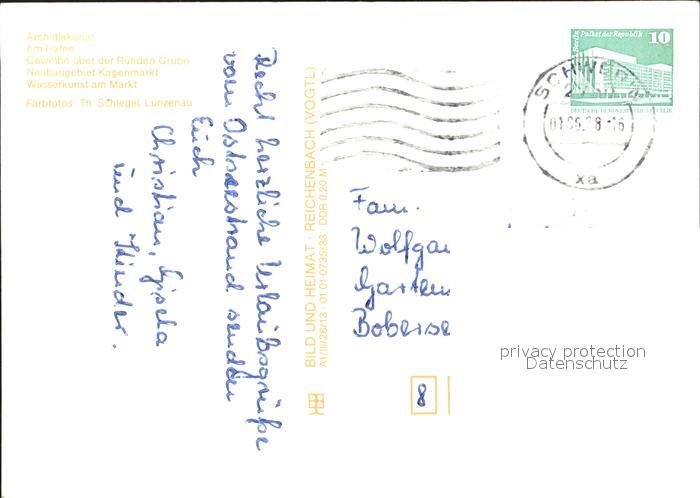 Archidiakonat
Am Hafen
Gewölbe über der Runden Grube
Neubaugebiet Kagenmarkt
Wasserkunst am Markt
Farbfotos: Th. Schlegel, Lunzenau
Recht herzliche Urlaubsgrüße
vom Ostseestrand senden
Euch
Christian, Gisela
und Kinder.
BILD UND HEIMAT · REICHENBACH (VOGTL)
A1/III/26/13 · 01 01 0735/33 DDR 0,20 M
Berlin Palast der Republik 10
DEUTSCHE DEMOKRATISCHE REPUBLIK
SCHWERIN
xa
Fam.
Wolfgan
Garten
8
privacy protection
Datenschutz